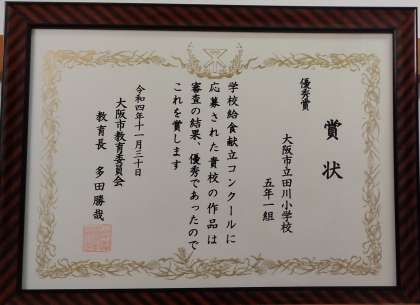 賞状
優秀賞
大阪市立田川小学校
五年一組
学校給食献立コンクールに
応募された貴校の作品は
審査の結果、優秀であったので
これを賞します
令和四年十一月三十日
大阪市教育委員会
教育長 多田勝哉